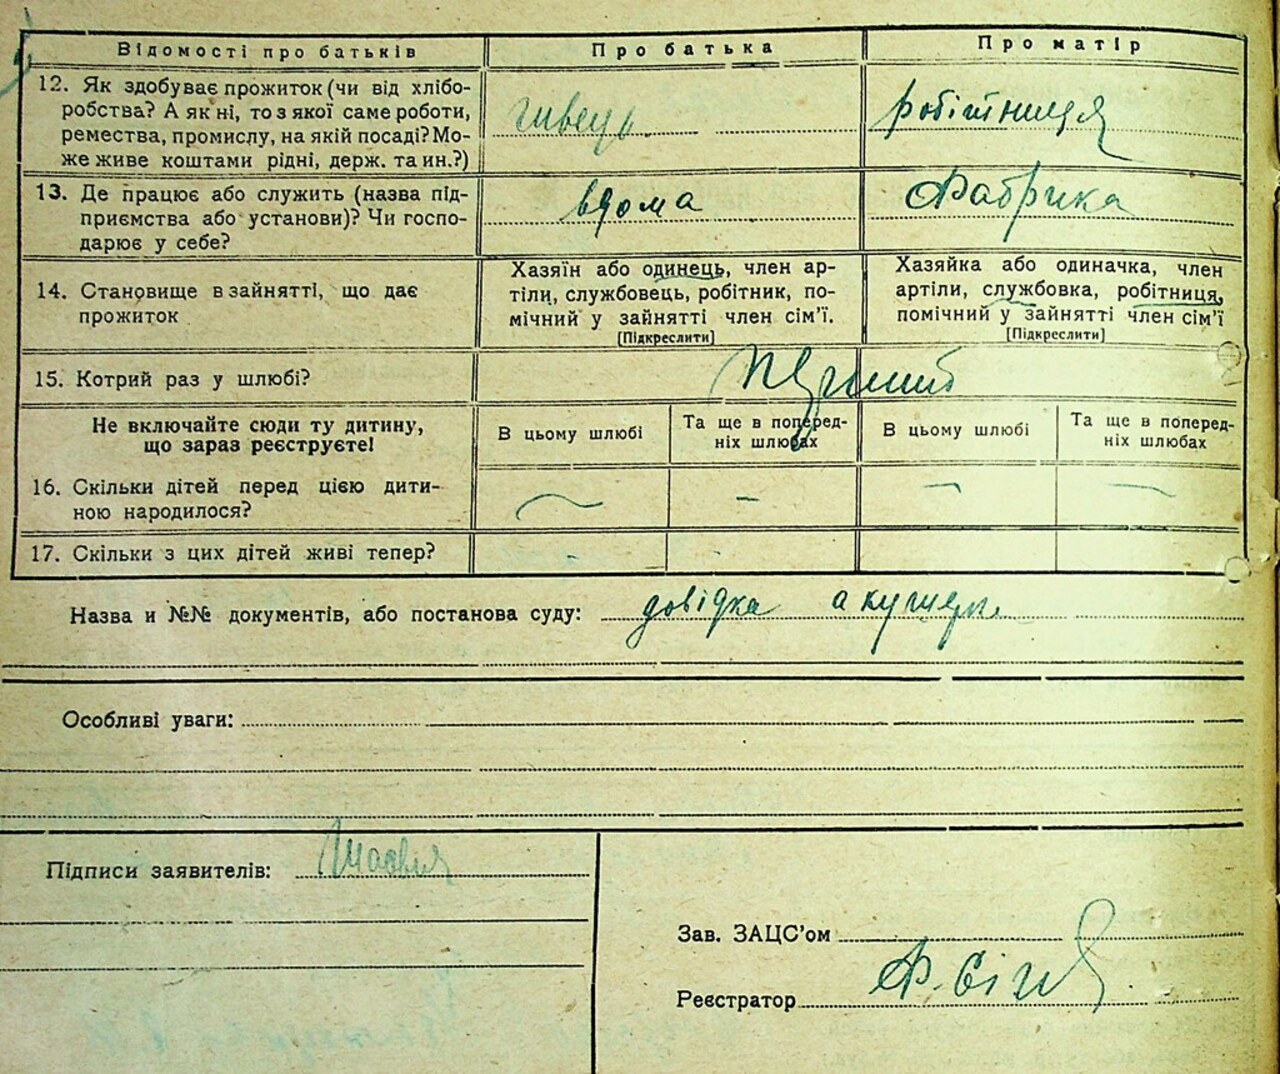 Відомості про батьків
Про батька
Про матір
12. Як здобуває прожиток (чи від хлібо-
робства? А як ні, то з якої саме роботи,
ремества, промислу, на якій посаді? Мо-
же живе коштами рідні, держ. та ин.?)
швець
робітниця
13. Де працює або служить (назва під-
приємства або установи)? Чи госпо-
дарює у себе?
вдома
Фабрика
14. Становище в зайнятті, що дає
прожиток
Хазяїн або одинець, член ар-
тіли, службовець, робітник, по-
мічний у зайнятті член сім'ї.
[Підкреслити]
Хазяйка або одиначка, член
артіли, службовка, робітниця,
помічний у зайнятті член сім'ї
[Підкреслити]
15. Котрий раз у шлюбі?
Не включайте сюди ту дитину,
що зараз реєструєте!
В цьому шлюбі
Та ще в поперед-
ніх шлюбах
В цьому шлюбі
Та ще в поперед-
ніх шлюбах
16. Скільки дітей перед цією дити-
ною народилося?
17. Скільки з цих дітей живі тепер?
Назва и №№ документів, або постанова суду: довідка акушерки
Особливі уваги:
Підписи заявителів:
Зав. ЗАЦС'ом
Реєстратор